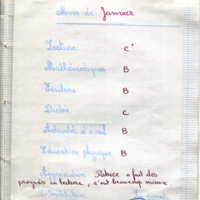 Mois de Janvier
Lecture C+
Mathématiques B
Ecriture B
Dictée C
Activités d'éveil B
Education physique B
Appréciation Patrice a fait des
progrès en lecture, c'est beaucoup mieux
L'institutrice